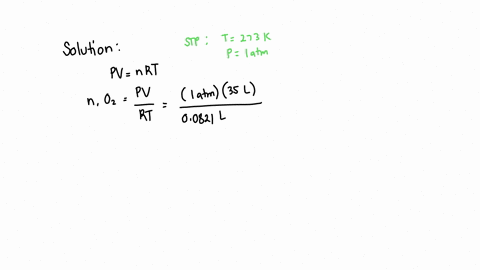 Solution:
STP: T = 273 K
P = 1 atm
PV = nRT
n, O₂ = PV/RT = (1 atm)(35 L)/0.0821 L